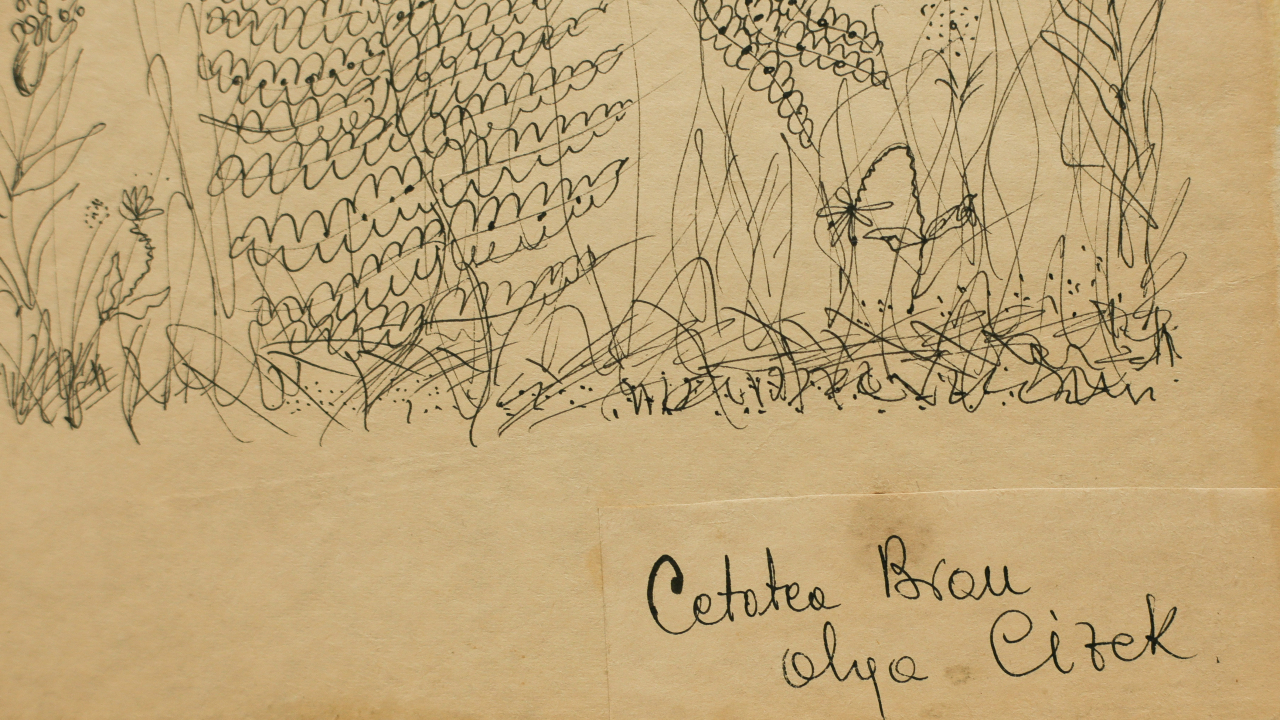 Cetatea Brau
Olga Cizek